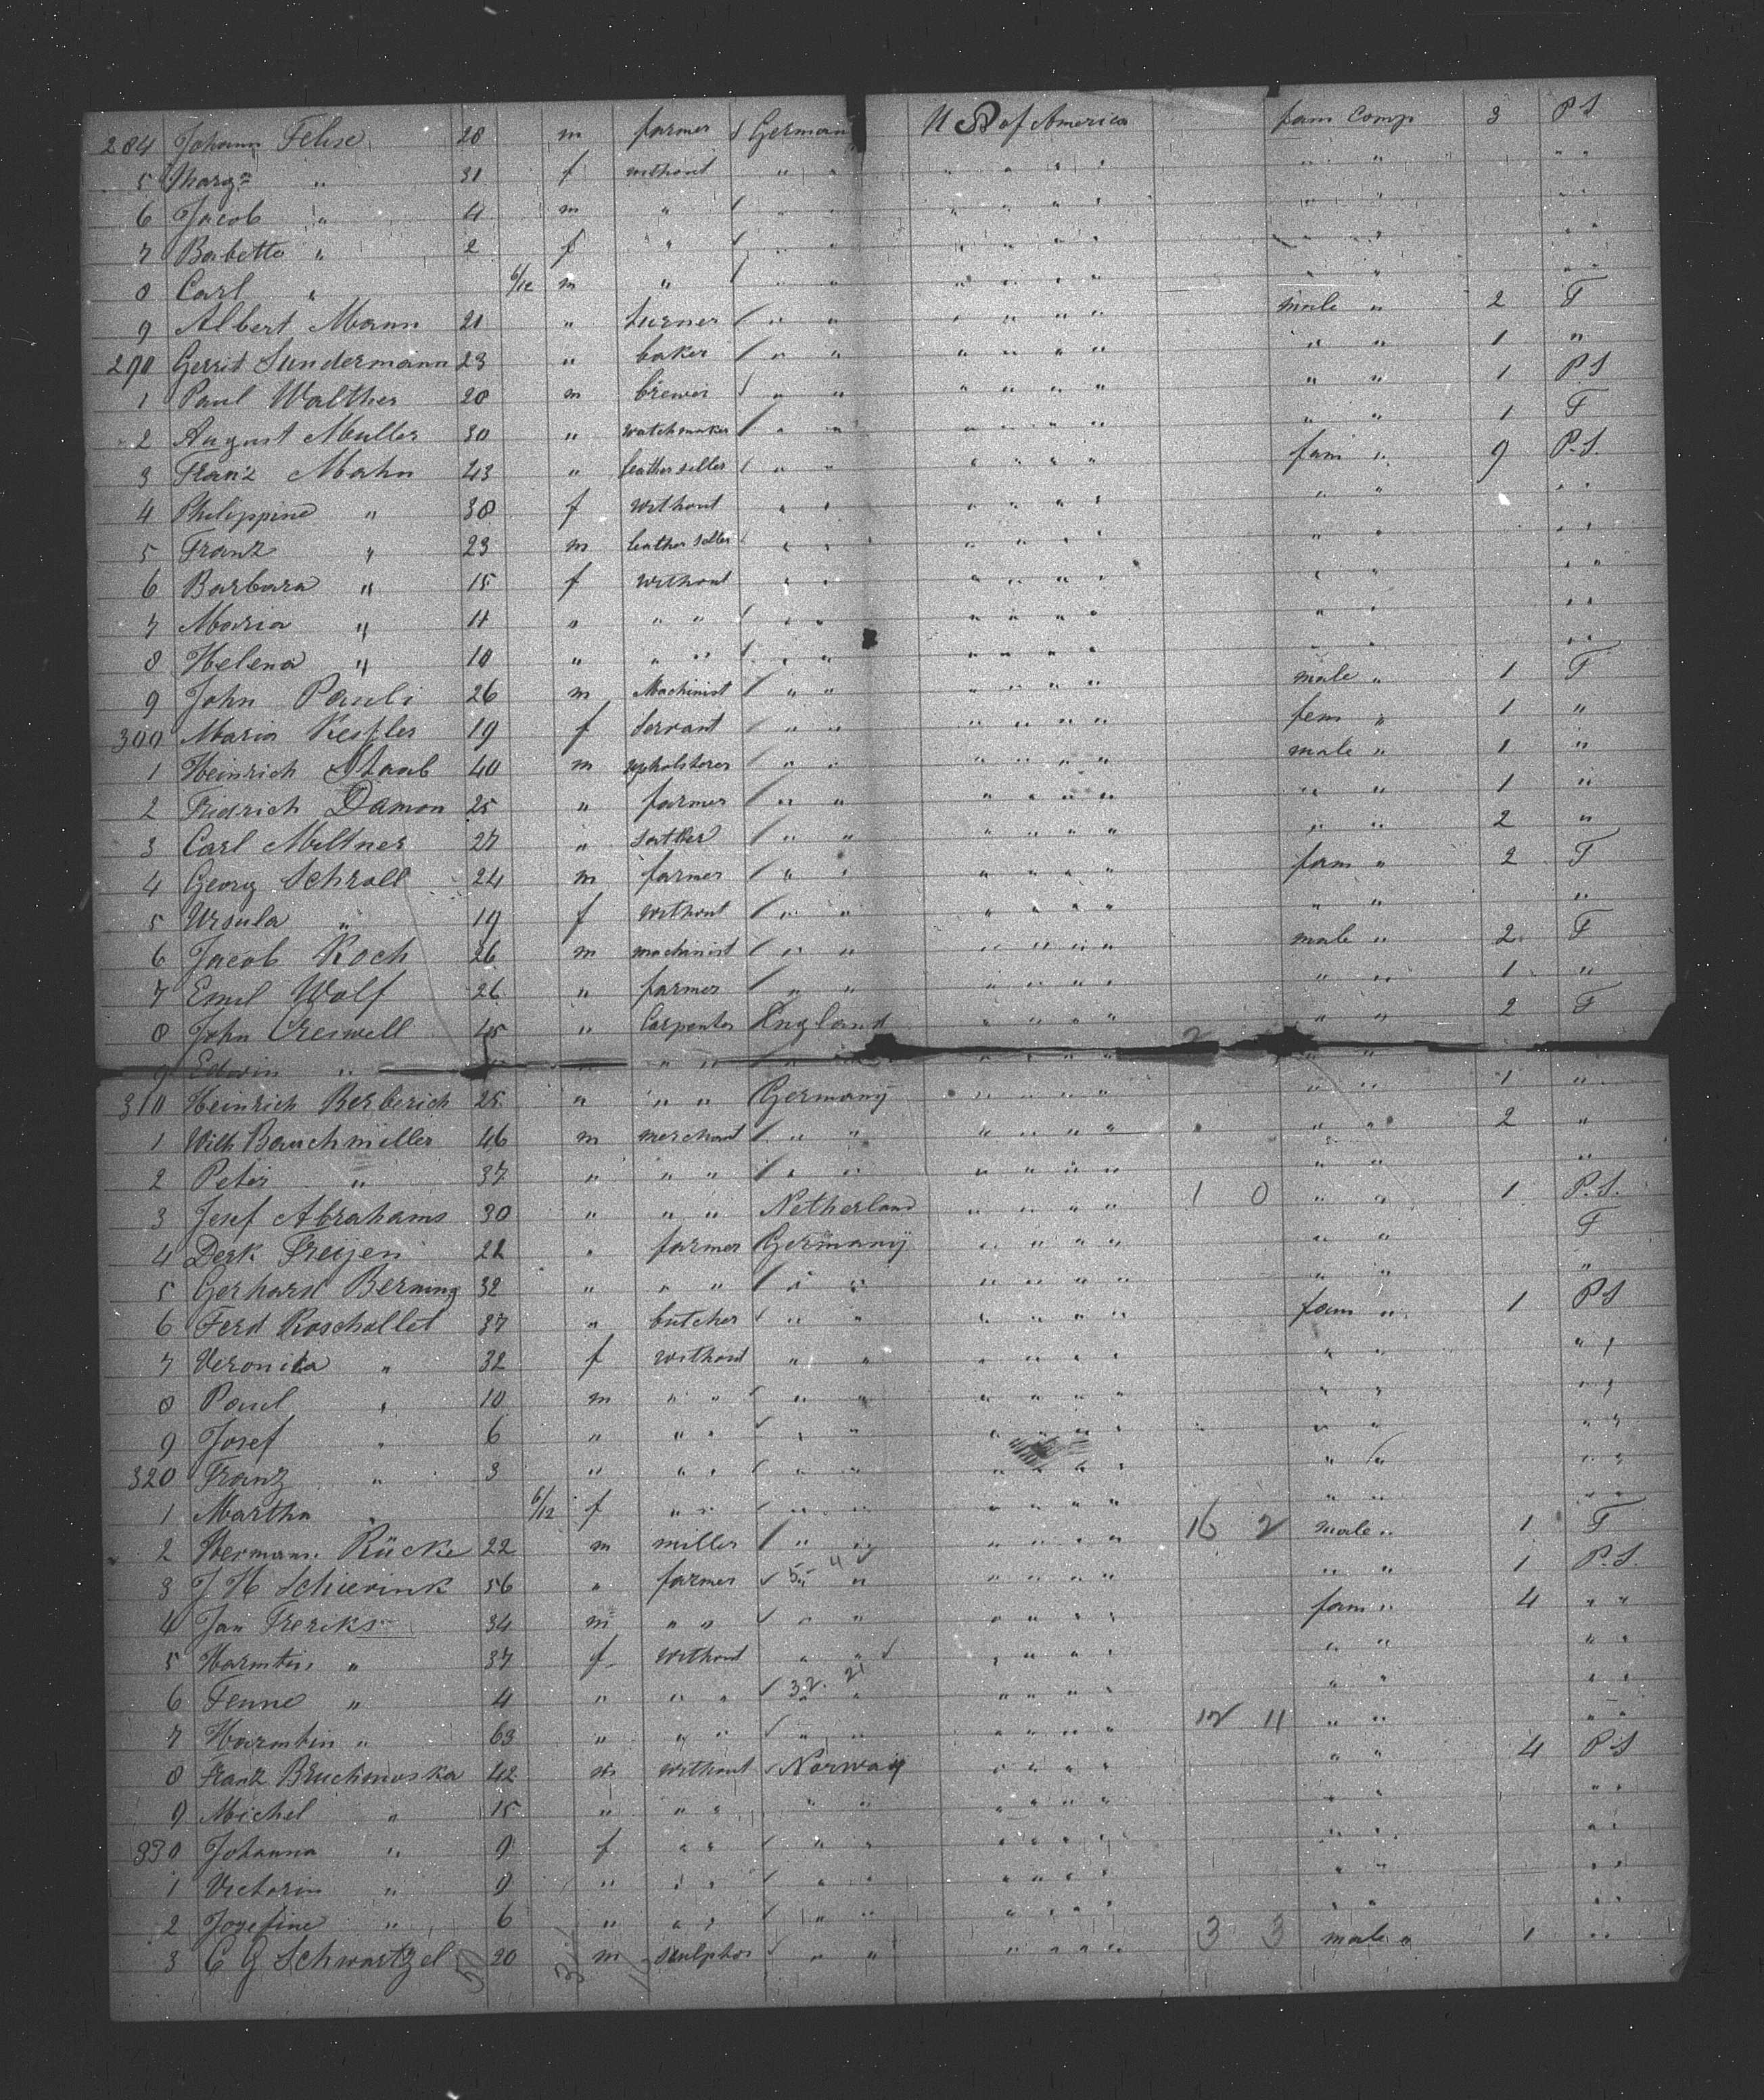 284 Johann Felise 28 m farmer German U S of America fam Comp 3 P S
5 Marg.a " 31 f without " " " " " " " " " "
6 Jacob " 4 m " " " " " " " " " " "
7 Babette " 2 f " " " " " " " " " " "
8 Carl " 6/12 m " " " " " " " " " " "
9 Albert Mann 21 " turner " " " " " " male " 2 F
290 Gerrit Sundermann 23 " baker " " " " " " " " 1 "
1 Paul Walther 20 m brewer " " " " " " " " 1 P.S
2 August Muller 30 " watchmaker " " " " " " " " 1 F
3 Franz Mahn 43 " leather seller " " " " " " fam " 9 P.S.
4 Philippine " 38 f without " " " " " " " " " "
5 Franz " 23 m leather seller " " " " " " " " " "
6 Barbara " 15 f without " " " " " " " " " "
7 Maria " 11 " " " " " " " " " " " " "
8 Helena " 10 " " " " " " " " " " " " "
9 John Pauli 26 m Machinist " " " " " " male " 1 F
300 Maria Kessler 19 f Servant " " " " " " fem " 1 "
1 Heinrich Staub 40 m upholsterer " " " " " " male " 1 "
2 Fridrich Damon 25 " farmer " " " " " " " " 1 "
3 Carl Miltner 27 " " " " " " " " " 2 "
4 Georg Schroll 24 m farmer " " " " " " fam " 2 F
5 Ursula " 19 f without " " " " " " " " "
6 Jacob Koch 26 m machinist " " " " " " male " 2 F
7 Emil Wolf 26 " farmer " " " " " " " " 1 "
8 John Creswell 45 " Carpenter England " " " " " " 2 F
9 Edwin " " " " " " " " " " " "
310 Heinrich Berberich 25 " " " Germany " " " " " " 1 "
1 Wilh Bauchmiller 46 m merchant " " " " " " " " 2 "
2 Peter " 37 " " " " " " " " " " " "
3 Josef Abrahams 30 " " " Netherland " " " " 1 0 " " 1 P.S.
4 Derk Freijen 22 " farmer Germany " " " " " " F
5 Gerhard Berning 32 " " " " " " " " " " " "
6 Ferd Raschollet 37 " butcher " " " " " " fam " 1 P S
7 Veronika " 32 f without " " " " " " " " " "
8 Paul " 10 m " " " " " " " " " " " "
9 Josef " 6 " " " " " " " " " " " " "
320 Franz " 3 " " " " " " " " " " " " "
1 Martha " 6/12 f " " " " " " " " " " " "
2 Hermann Rücke 22 m miller " " " " " " 16 2 male " 1 F
3 J H Schierink 56 " farmer 5 4 " " " " " " " 1 P.S.
4 Jan Freriks 34 m " " " " " " " " fam " 4 " "
5 Harmtin " 37 f without " " " " " " " " " "
6 Fenne " 4 " " " 32 21 " " " " " " " "
7 Harmtin " 63 " " " " " " " " " 12 11 " " " "
8 Frank Bruchmoska 42 m without Norway " " " " " " 4 P S
9 Michel " 15 " " " " " " " " " " " " "
330 Johanna " 9 f " " " " " " " " " " " "
1 Victorin " 9 " " " " " " " " " " " " "
2 Josefine " 6 " " " " " " " " " " " " "
3 C G Schwartzel 20 m sculptor " " " " " " 3 3 male " 1 " "